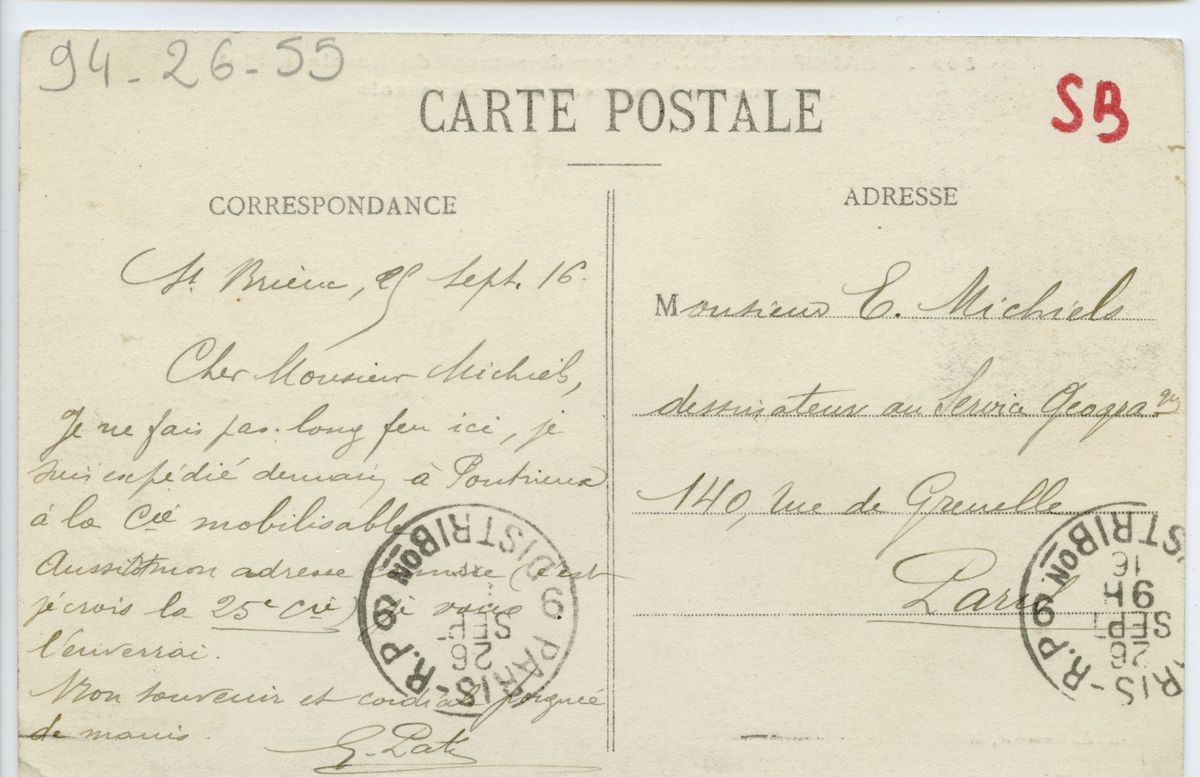 94-26-55
CARTE POSTALE
SB
CORRESPONDANCE
St Brieuc, 25 Sept. 16.
Cher Monsieur Michiels,
Je ne fais pas long feu ici, je
suis expédié demain à Pontrieux
à la Cie mobilisable
Aussitôt mon adresse connue (c'est
je crois la 25e Cie) je vous
l'enverrai.
Mon souvenir et cordiale poignée
de mains.
ADRESSE
Monsieur E. Michiels
dessinateur au Service Géogra que
140, rue de Grenelle
Paris
PARIS-R.P 9 DISTRIBON
26
SEPT
PARIS-R.P 9 DISTRIBON
26
SEPT
9H
16